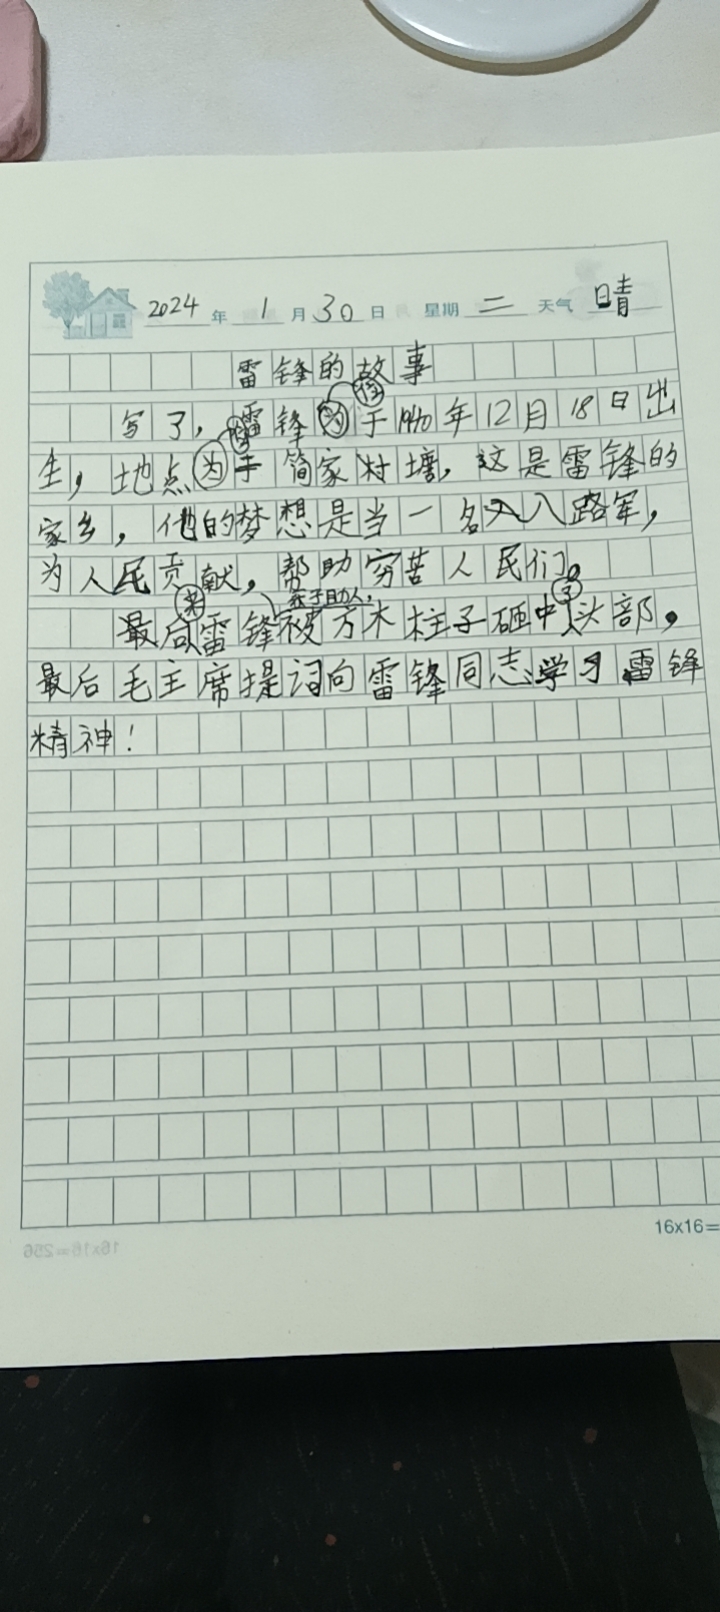 2024 年 1 月 30 日 星期 二 天气 晴
雷锋的故事
写了，雷锋为于1940年12月18日出
生，地点为于简家村塘，这是雷锋的
家乡，他的梦想是当一名入八路军，
为人民贡献，帮助穷苦人民们。
来
乐于助人，
最后雷锋被方木柱子砸中头部，
最后毛主席提词向雷锋同志学习雷锋
精神！
16x16=